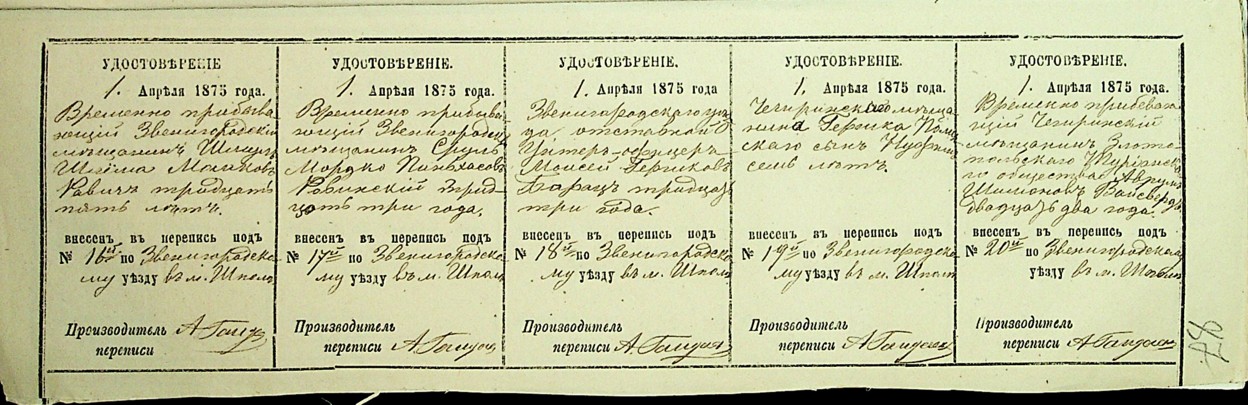 УДОСТОВѢРЕНІЕ
1. Апрѣля 1875 года.
Временно прибыва-
ющій Звенигородскій
мѣщанинъ
Равичъ тридцать
пять лѣтъ.
внесенъ въ перепись подъ
№ 16й по Звенигородско-
му уѣзду въ м. Шполѣ
Производитель
переписи
УДОСТОВѢРЕНІЕ.
1. Апрѣля 1875 года.
Временно прибыва-
ющій Звенигородскій
мѣщанинъ Сруль
Мордко Пинхасовъ
Рабинскій трид-
цать три года.
внесенъ въ перепись подъ
№ 17й по Звенигородско-
му уѣзду въ м. Шполѣ
Производитель
переписи
УДОСТОВѢРЕНІЕ.
1. Апрѣля 1875 года
Звенигородского уѣз-
да отставной
Унтеръ-офицеръ
Моисей Гершковъ
тридцать
три года.
внесенъ въ перепись подъ
№ 18й по Звенигородско-
му уѣзду въ м. Шполѣ
Производитель
переписи
УДОСТОВѢРЕНІЕ.
1. Апрѣля 1875 года.
Чегиринскаго мѣща-
нина Гершка
скаго сынъ
семь лѣтъ.
внесенъ въ перепись подъ
№ 19й по Звенигородско-
му уѣзду въ м. Шполѣ
Производитель
переписи
УДОСТОВѢРЕНІЕ.
1. Апрѣля 1875 года.
Временно прибеваю-
щій Чегиринскій
мѣщанинъ Злато-
польского
го общества
Шимоновъ
двадцать два года.
внесенъ въ перепись подъ
№ 20й по Звенигородскому
уѣзду въ м. Шполѣ
Производитель
переписи